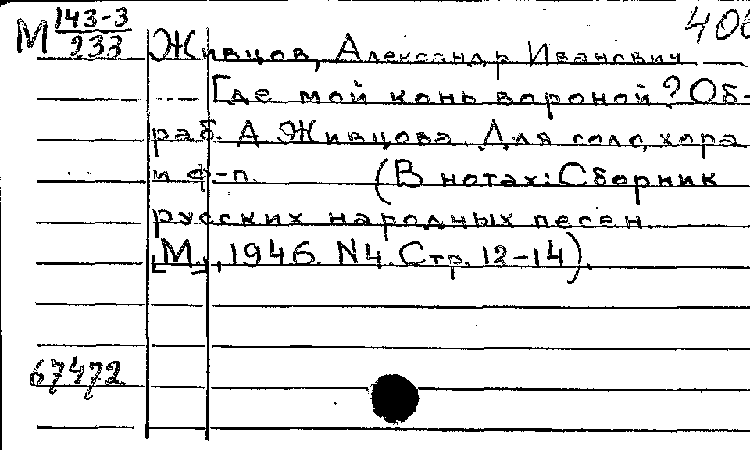 М 143-3/233
406
Живцов, Александр Иванович
Где мой конь вороной? Об-
раб. А Живцова. Для соло, хора
и ф-п. (В нотах: Сборник
русских народных песен
[М.], 1946. N4. Стр. 12-14).
67472